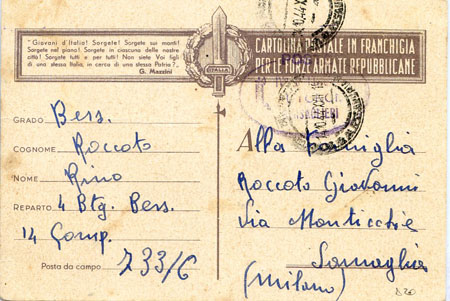 "Giovani d'Italia! Sorgete! Sorgete sui monti!
Sorgete nel piano! Sorgete in ciascuna delle nostre
città! Sorgete tutti e per tutti! Non siete Voi figli
di una stessa Italia, in cerca di una stessa Patria?"
G. Mazzini
ITALIA
CARTOLINA POSTALE IN FRANCHIGIA
PER LE FORZE ARMATE REPUBBLICANE
GRADO Bers.
COGNOME Roccato
NOME Rino
REPARTO 4 Btg. Bers.
14 Comp.
Posta da campo 733/C
Alla Famiglia
Roccato Giovanni
Via
(Milano)